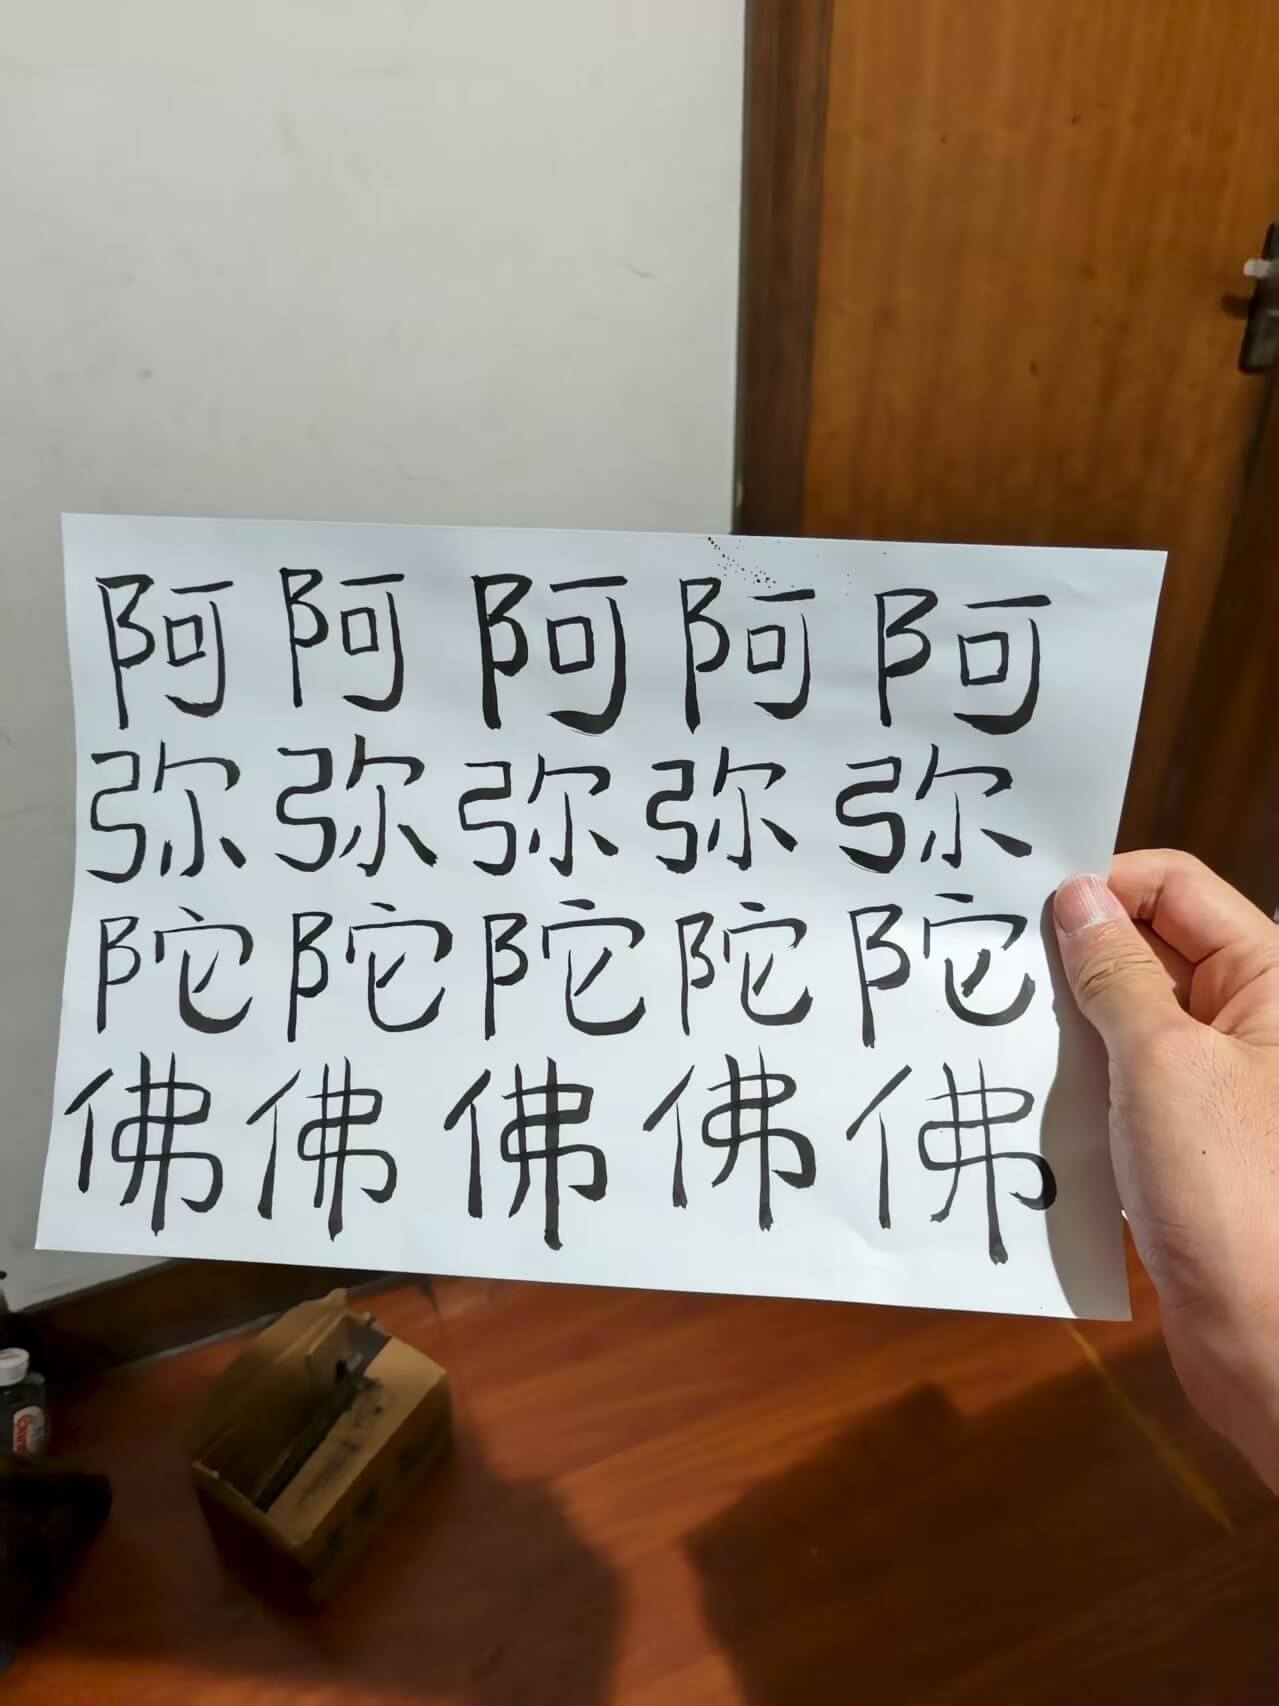 阿阿阿阿阿
弥弥弥弥弥
陀陀陀陀陀
佛佛佛佛佛